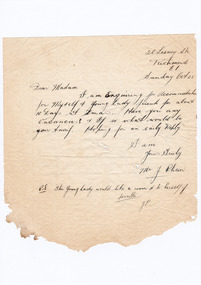 Richmond
E1
Sunday Oct
Dear Madam
I am Enquiring for Accommodation
for Myself & Young Lady friend for about
Days at Xmas. Have you any
& If so what would be
your Tariff. Hoping for an early Reply
I am
Yours Truly
Mr J
P.S. The Young Lady would like a room to herself